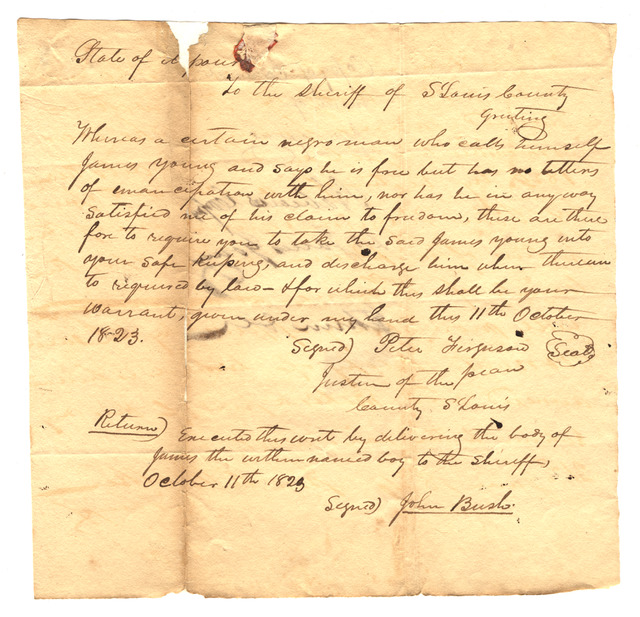 State of Missouri
To the Sheriff of S Louis County
Greeting
Whereas a certain negro man who calls himself
James Young and says he is free but has no letters
of emancipation with him, nor has he in any way
satisfied me of his claim to freedom, these are there
fore to require you to take the said James Young into
your safe keeping, and discharge him when thereun
to required by law - & for which this shall be your
warrant, given under my hand this 11th October
1823.
Signed) Peter Ferguson Seal
Justice of the peace
County S Louis
Return) Executed this writ by delivering the body of
James the within named boy to the Sheriff,
October 11th 1823
Signed) John Bush.